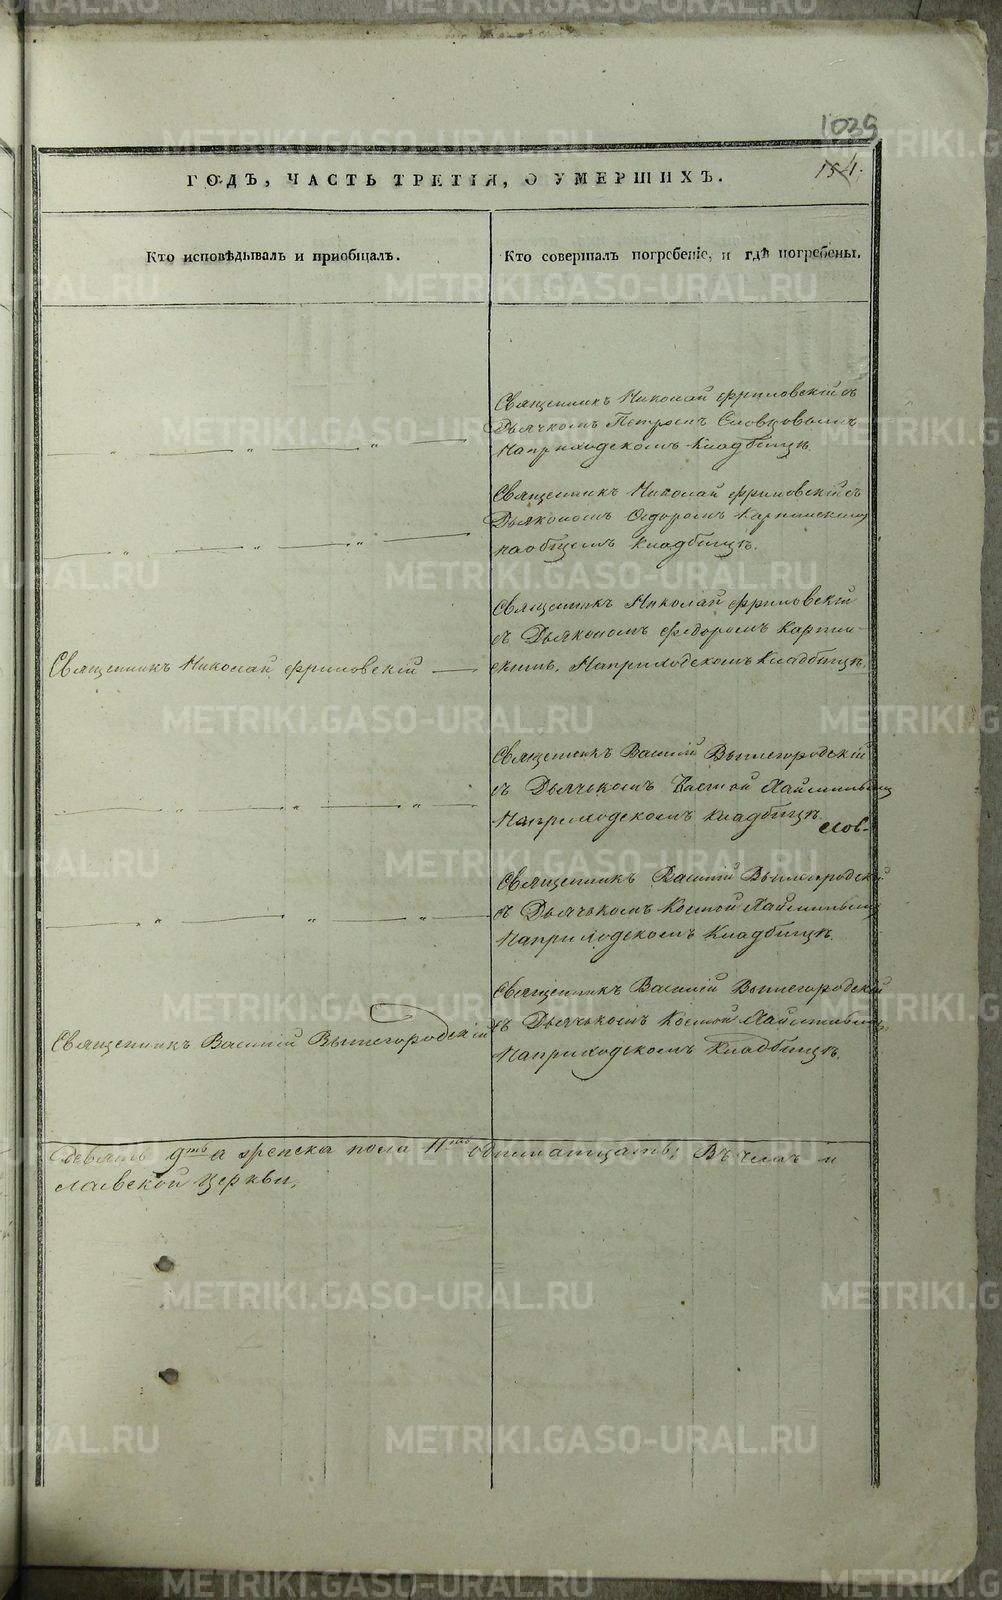 1039
154.
ГОДЪ, ЧАСТЬ ТРЕТІЯ, О УМЕРШИХЪ.
Кто исповѣдывалъ и пріобщалъ.
Кто совершалъ погребеніе, и гдѣ погребены.
Священникъ Николай Фриловскій съ
Дьячкомъ Петромъ Словцовымъ
На приходскомъ кладбищѣ.
Священникъ Николай Фриловскій съ
Дьякономъ Федоромъ Карпинскимъ
на общемъ кладбищѣ.
Священникъ Николай Фриловскій
Священникъ Николай Фриловскій
съ Дьякономъ Федоромъ Карпин-
скимъ, На приходскомъ кладбищѣ.
Священникъ Василій Вышегородскій
съ Дьячькомъ Костой
На приходскомъ кладбищѣ.
слов-
Священникъ Василій Вышегородскій
съ Дьячькомъ Костой
На приходскомъ кладбищѣ.
Священникъ Василій Вышегородскій
Священникъ Василій Вышегородскій
съ Дьячькомъ Костой
На приходскомъ кладбищѣ.
девять 9ть а женска пола 11ть одиннатцать; Въ чемъ и
славской церкви,
METRIKI.GASO-URAL.RU